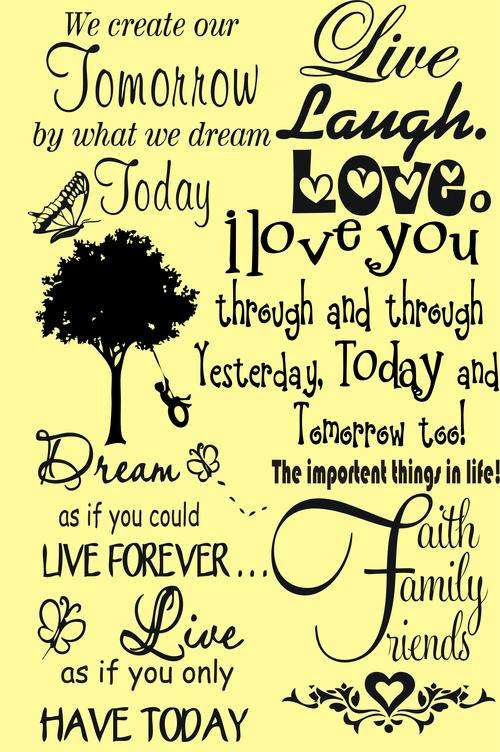 We create our
Tomorrow
by what we dream
Today
Live
Laugh.
Love.
i love you
through and through
Yesterday, Today and
Tomorrow too!
Dream
as if you could
LIVE FOREVER...
Live
as if you only
HAVE TODAY
The importent things in life!
Faith
Family
Friends